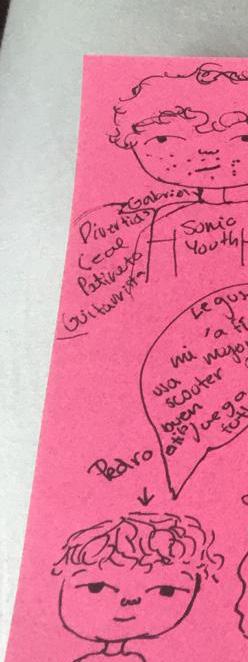 Gabriel
Divertido
Leal
Patineto
Guitarrista
Sonic
Youth
Le gus
mi mejor
usa
scooter
buen
Juega
fut
Pedro